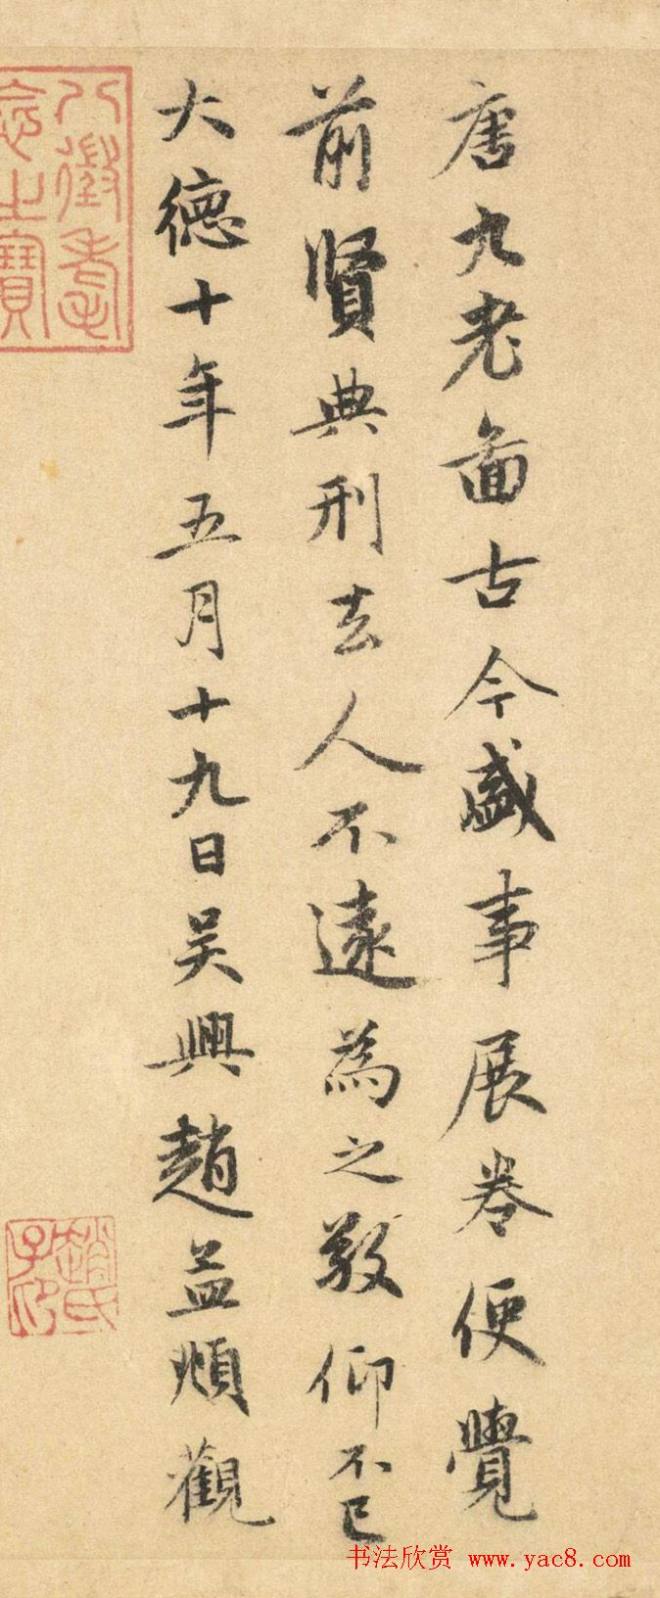 唐九老圖古今盛事展卷便覺
前賢典刑去人不遠為之敬仰不已
大德十年五月十九日吳興趙孟頫觀
八徵耄念之寶
趙氏子昂
书法欣赏 www.yac8.com